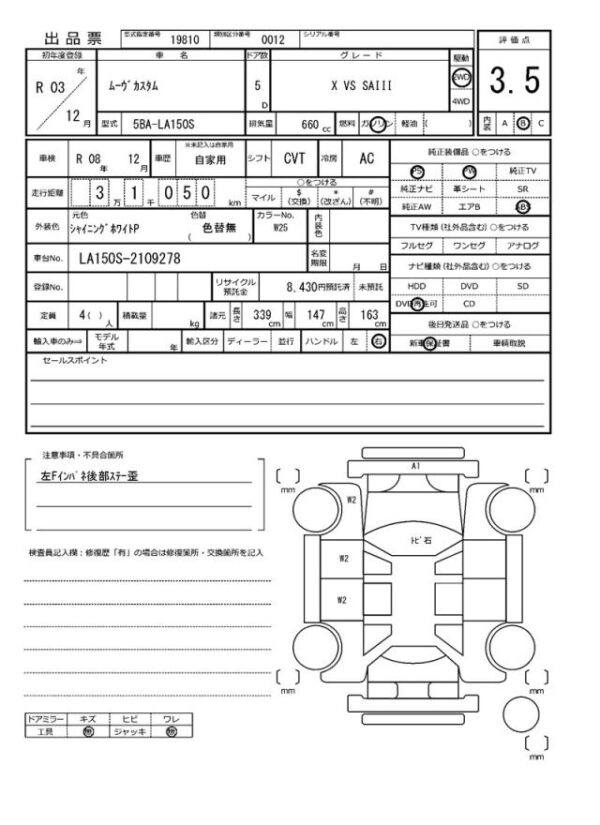 出品票 型式指定番号 19810 類別区分番号 0012 シリアル番号
評価点
初年度登録 車名 ドア数 グレード 駆動
R 03 年 12 月 ﾑｰｳﾞｶｽﾀﾑ 5 D X VS SAIII 2WD 4WD
3.5
型式 5BA-LA150S 排気量 660 cc 燃料 ガソリン 軽油 ( )
内装 A B C
車検 R 08 年 12 月 車歴 ※未記入は自家用 自家用 シフト CVT 冷房 AC
純正装備品 ○をつける
PS PW 純正TV
走行距離 3 万 1 千 0 5 0 km
○をつける
マイル $ (交換) * (改ざん) # (不明)
純正ナビ 革シート SR
純正AW エアB ABS
外装色 元色 ｼｬｲﾆﾝｸﾞﾎﾜｲﾄP 色替 ( 色替無 ) カラーNo. W25 内装色
TV種類 (社外品含む) ○をつける
フルセグ ワンセグ アナログ
車台No. LA150S-2109278 名変期限 月 日
ナビ種類 (社外品含む) ○をつける
HDD DVD SD
登録No. リサイクル預託金 8,430円預託済 未預託
DVD再生可 CD
定員 4( ) 人 積載量 kg 諸元 長さ 339 cm 幅 147 cm 高さ 163 cm
後日発送品 ○をつける
輸入車のみ⇒ モデル年式 年 輸入区分 ディーラー 並行 ハンドル 左 右
新車保証書 車輌取説
セールスポイント
注意事項・不具合箇所
左Fｲﾝﾊﾟﾈ後部ｽﾃｰ歪
検査員記入欄：修復歴「有」の場合は修復箇所・交換箇所を記入
A1
mm
mm
W2
ﾄﾋﾞ石
W2
W2
mm
mm
ドアミラー キズ ヒビ ワレ
工具 無 ジャッキ 無
mm